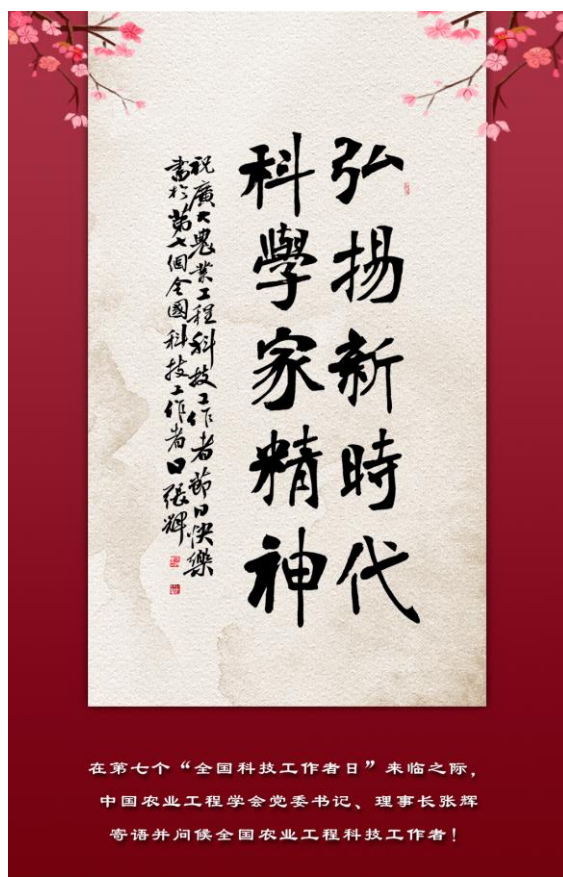 弘揚新時代
科學家精神
祝廣大農業工程科技工作者節日快樂
書於第七個全國科技工作者日張輝
在第七个“全国科技工作者日”来临之际，
中国农业工程学会党委书记、理事长张辉
寄语并问候全国农业工程科技工作者！